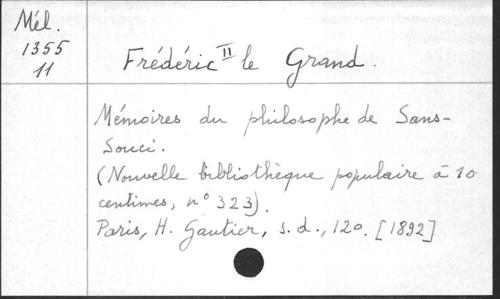 Mél.
1355
11
Frédéric II le Grand.
Mémoires du philosophe de Sans-
Souci.
(Nouvelle bibliothèque populaire à 10
centimes, n° 323).
Paris, H. Gautier, s.d., 12o. [1892]